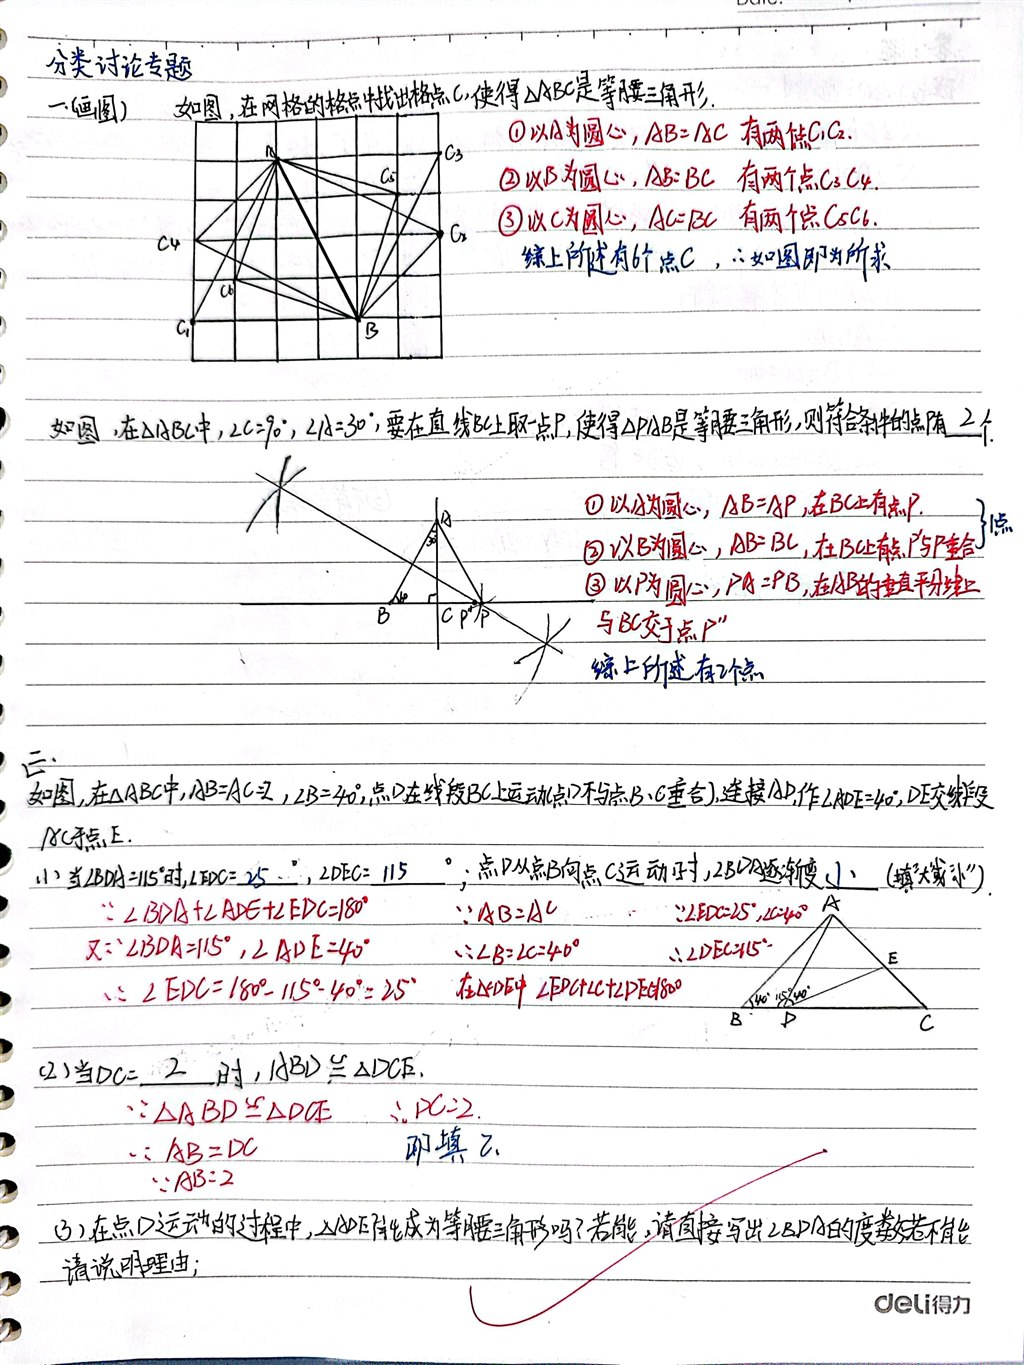 分类讨论专题
一(画图) 如图,在网格的格点中找出格点C,使得△ABC是等腰三角形.
①以A为圆心,AB=AC 有两点C1C2.
②以B为圆心,AB=BC 有两个点C3C4.
③以C为圆心,AC=BC 有两个点C5C6.
综上所述有6个点C ,∴如图即为所求
A
C3
C5
C4
C2
C6
C1
B
如图,在△ABC中,∠C=90°,∠A=30°,要在直线BC上取一点P,使得△PAB是等腰三角形,则符合条件的点P有 2 个.
①以A为圆心,AB=AP,在BC上有点P.
②以B为圆心,AB=BC,在BC上有点P'与P重合
}1点
③以P为圆心,PA=PB,在AB的垂直平分线上
与BC交于点P''
综上所述有2个点
A
30°
B
C
P
二.
如图,在△ABC中,AB=AC=2,∠B=40°,点D在线段BC上运动(点D不与点B、C重合),连接AD,作∠ADE=40°,DE交线段
AC于点E.
(1)当∠BDA=115°时,∠EDC= 25 °,∠DEC= 115 °;点D从点B向点C运动时,∠BDA逐渐变 小 (填"大"或"小").
∵∠BDA+∠ADE+∠EDC=180°
又∵∠BDA=115°,∠ADE=40°
∴∠EDC=180°-115°-40°=25°
∵AB=AC
∴∠B=∠C=40°
在△CDE中 ∠EDC+∠C+∠DEC=180°
∵∠EDC=25°,∠C=40°
∴∠DEC=115°
A
E
B 40° 115° 40°
D
C
(2)当DC= 2 时,△ABD≌△DCE.
∵△ABD≌△DCE ∴DC=2.
∴AB=DC 即填2.
∵AB=2
(3)在点D运动的过程中,△ADE能成为等腰三角形吗?若能,请直接写出∠BDA的度数;若不能
请说明理由;
deli得力